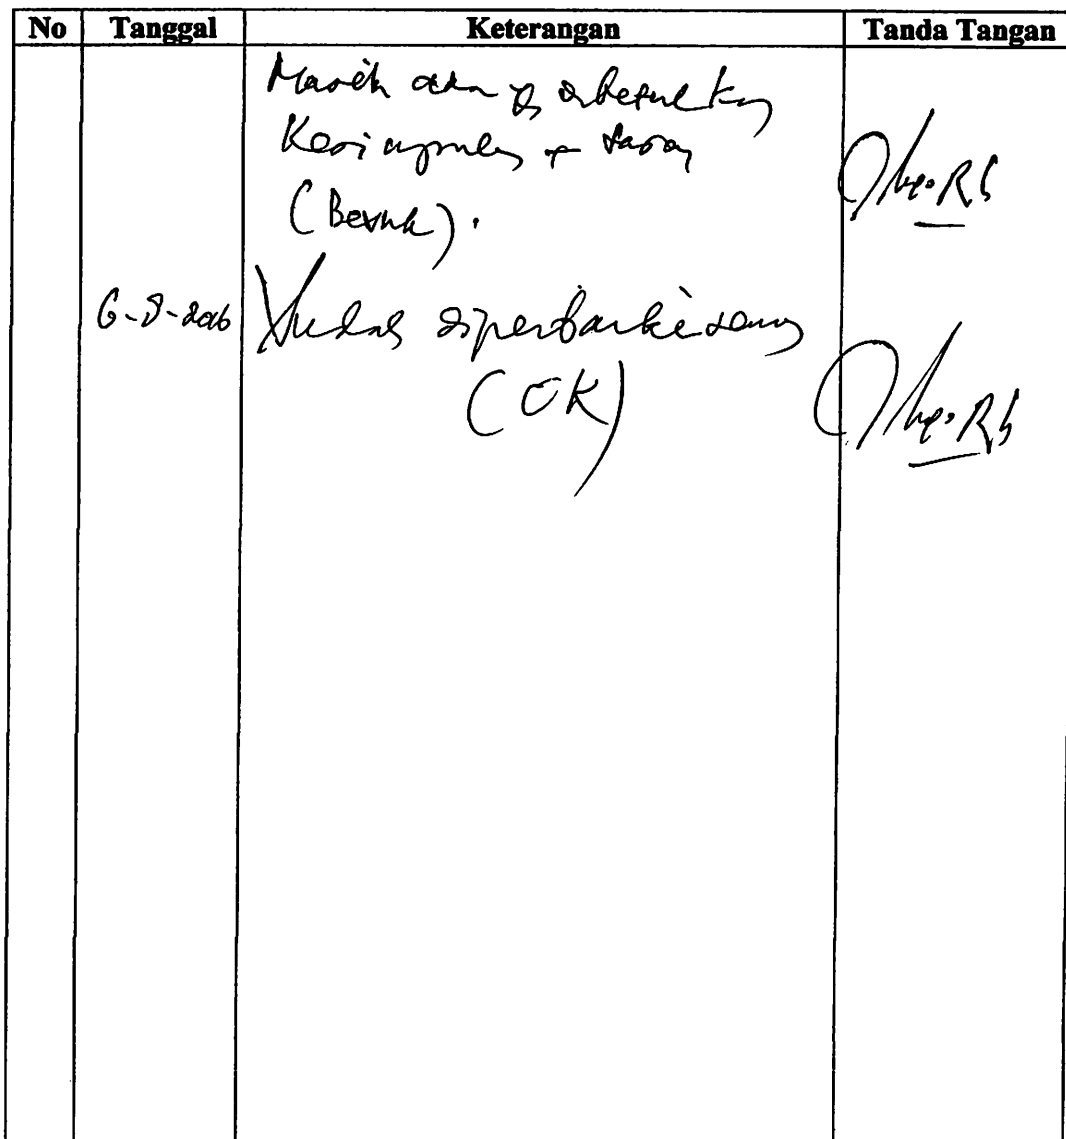 No Tanggal Keterangan Tanda Tangan
Masih ada yg dibetulkan
Kesimpulan + saran
(Besuk).
6-8-2016 Sudah diperbaiki semua
(OK)